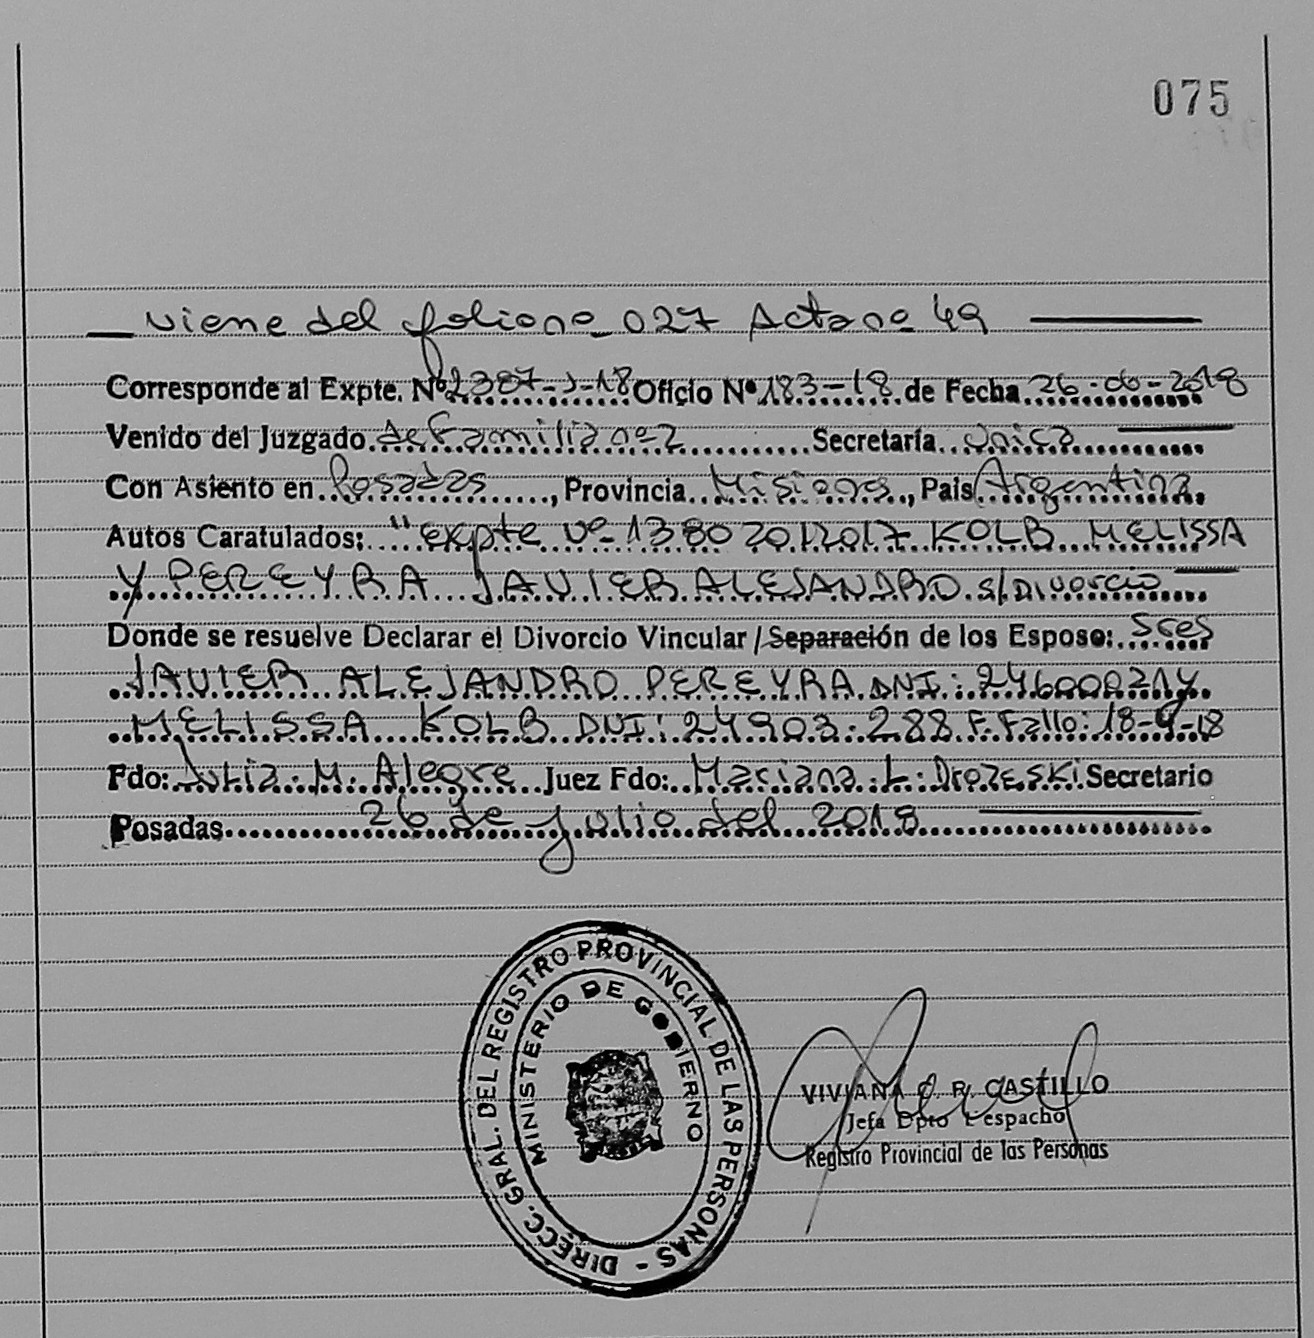 075
viene del folio nº 027 Acta nº 49
Corresponde al Expte. Nº 2387-J-18 Oficio Nº 183-18 de Fecha 26-06-2018
Venido del Juzgado de Familia nº 2 Secretaría Unica
Con Asiento en Posadas, Provincia Misiones, Pais Argentina.
Autos Caratulados: "expte nº 13802012017 KOLB MELISSA
Y PEREYRA JAVIER ALEJANDRO s/Divorcio
Donde se resuelve Declarar el Divorcio Vincular / Separación de los Esposo: Sres
JAVIER ALEJANDRO PEREYRA DNI: y
MELISSA KOLB DNI: 24903.288 F. Fallo: 18-4-18
Fdo: Julia M. Alegre Juez Fdo: Mariana L. Secretario
Posadas 26 de julio del 2018
DIRECC. GRAL. DEL REGISTRO PROVINCIAL DE LAS PERSONAS -
MINISTERIO DE GOBIERNO
VIVIANA C. R. CASTILLO
Jefa Dpto Despacho
Registro Provincial de las Personas